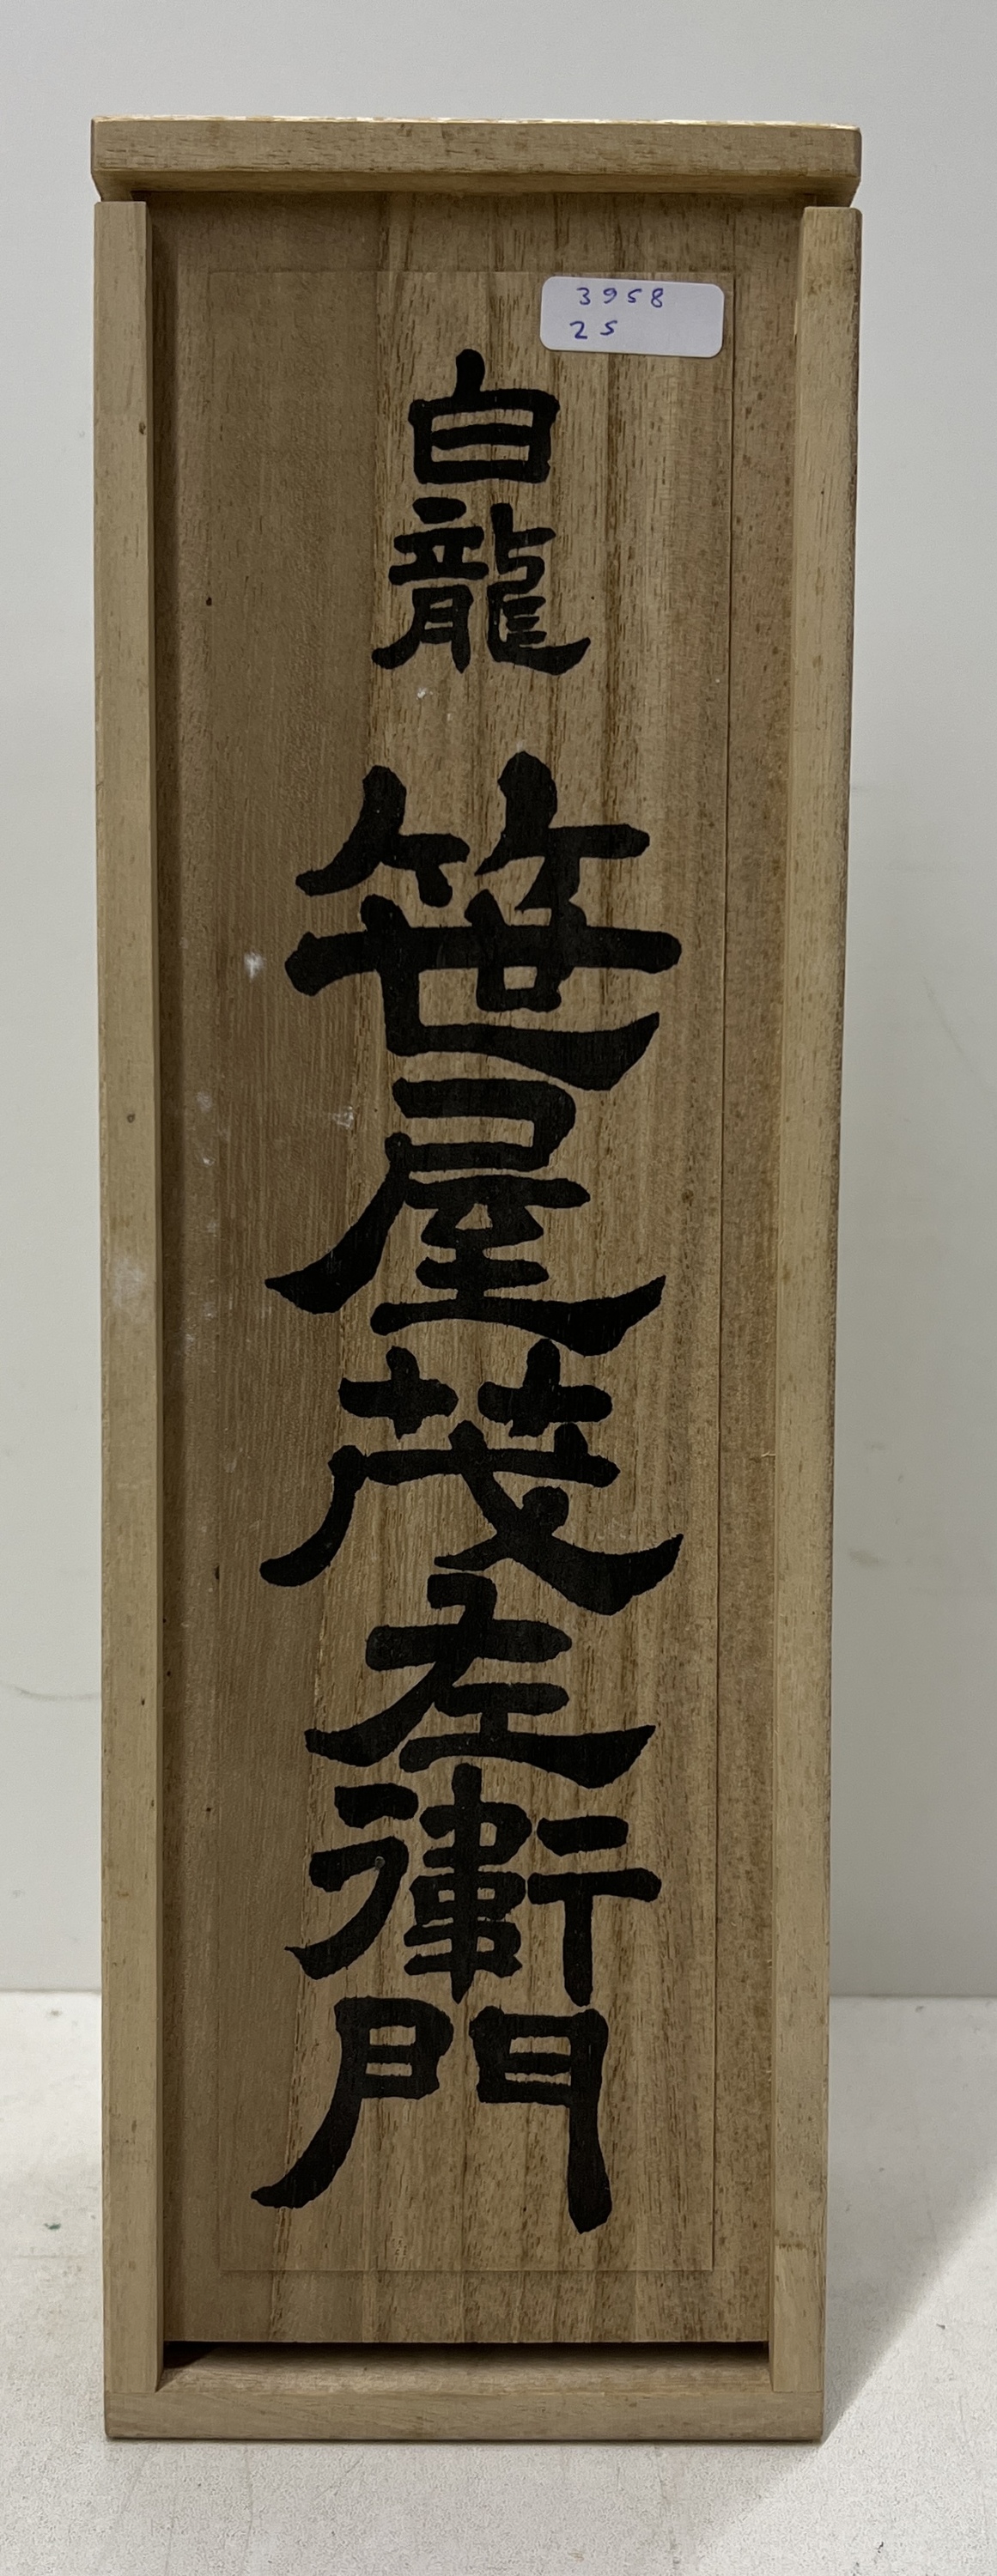 3958
25
白龍
笹屋茂左衛門